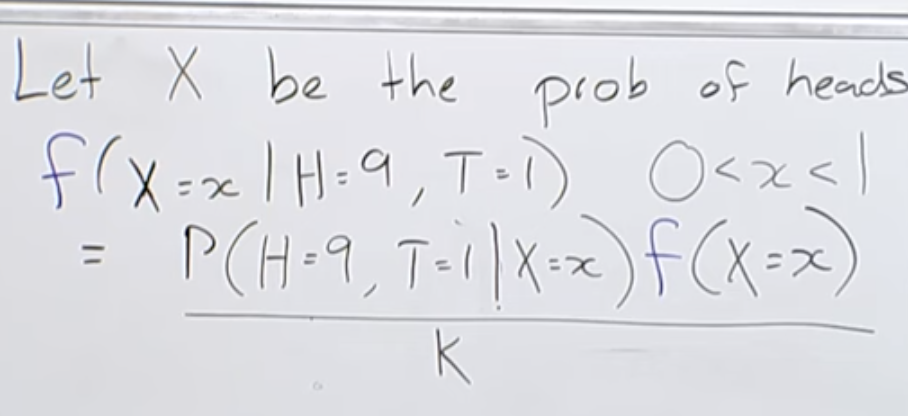 Let X be the prob of heads
f(X=x | H=9, T=1) 0<x<1
= P(H=9, T=1 | X=x) f(X=x)
K